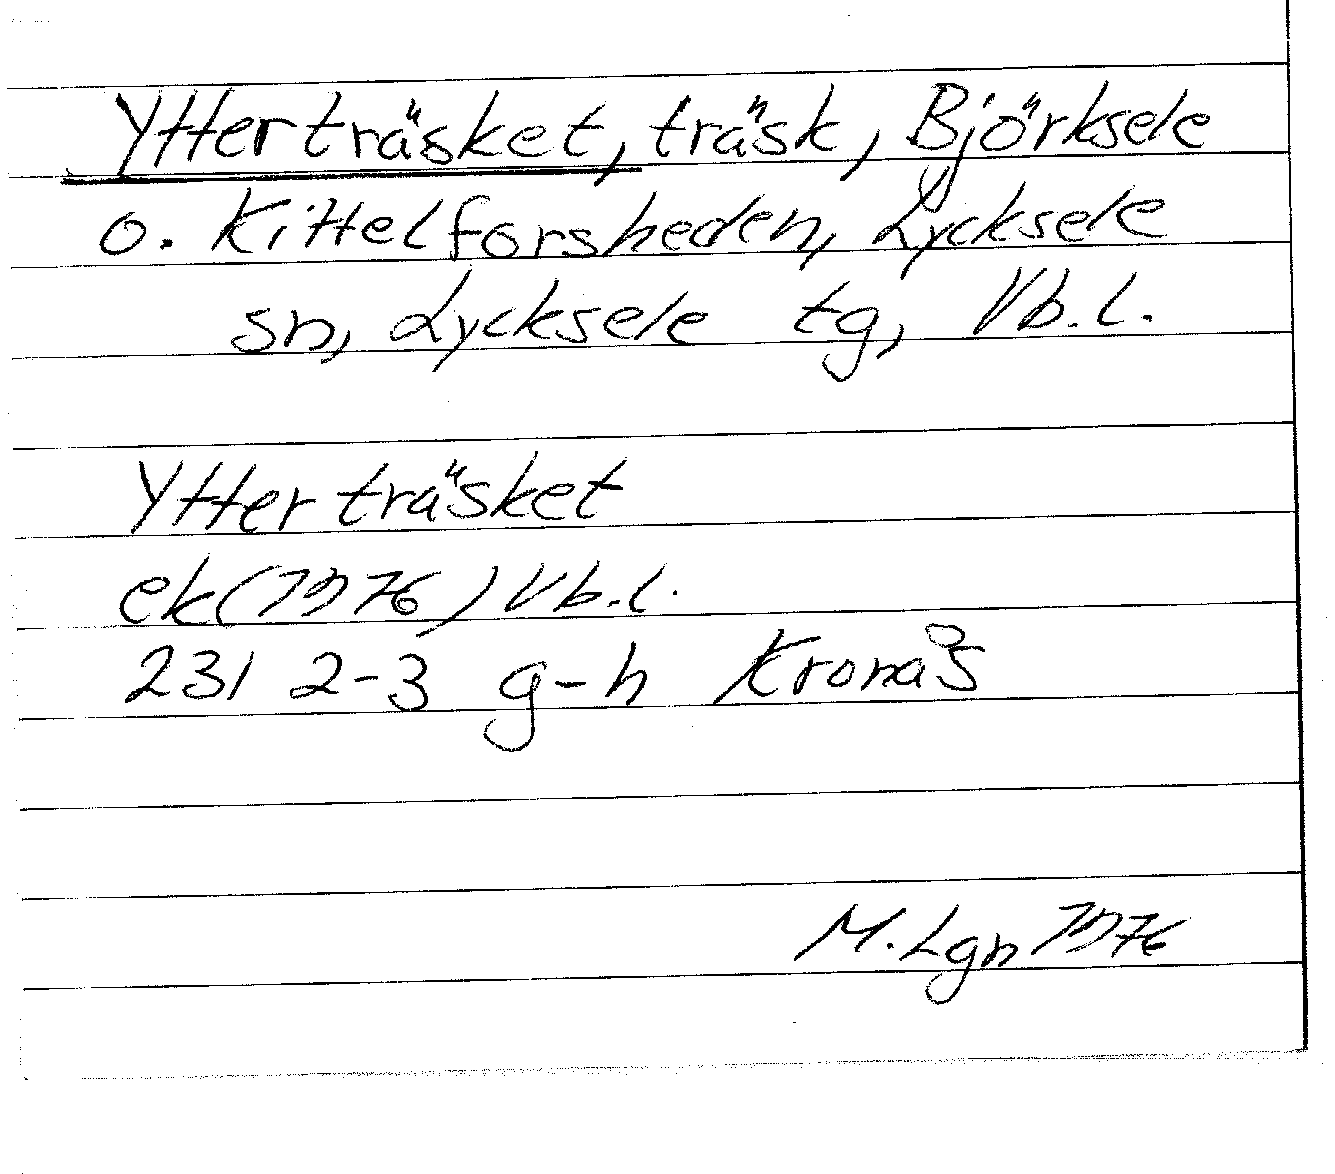 Ytterträsket, träsk, Björksele
o. Kittelforsheden, Lycksele
sn, Lycksele tg, Vb.l.
Ytterträsket
ek (1976) Vb.l.
231 2-3 g-h Kronås
M.Lgn 1976